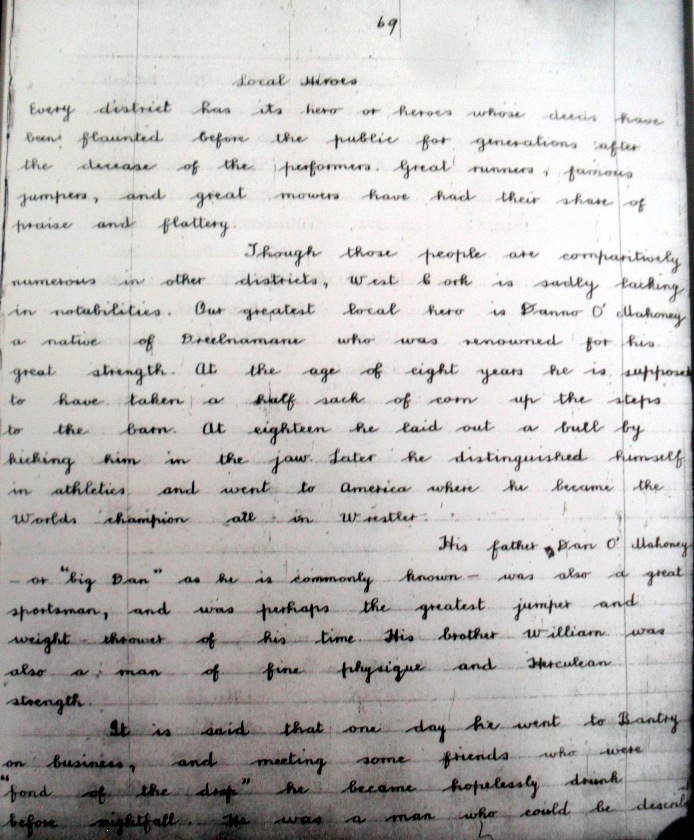 69
Local Heroes
Every district has its hero or heroes whose deeds have
been flaunted before the public for generations after
the decease of the performers. Great runners, famous
jumpers, and great mowers have had their share of
praise and flattery.
Though those people are comparitively
numerous in other districts, West Cork is sadly lacking
in notabilities. Our greatest local hero is Danno O' Mahoney
a native of Dreelnamane who was renowned for his
great strength. At the age of eight years he is supposed
to have taken a half sack of corn up the steps
to the barn. At eighteen he laid out a bull by
kicking him in the jaw. Later he distinguished himself
in athletics and went to America where he became the
Worlds champion all - in Wrestler.
His father, Dan O' Mahoney
- or "big Dan" as he is commonly known - was also a great
sportsman, and was perhaps the greatest jumper and
weight thrower of his time. His brother William was
also a man of fine physique and Herculean
strength.
It is said that one day he went to Bantry
on business, and meeting some friends who were
"fond of the drop" he became hopelessly drunk
before nightfall. He was a man who could be describ